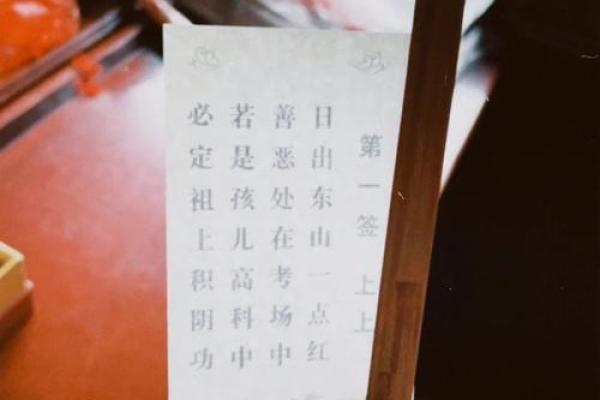 第一签 上上
日出东山一点红
善恶处在考场中
若是孩儿高科中
必定祖上积阴功